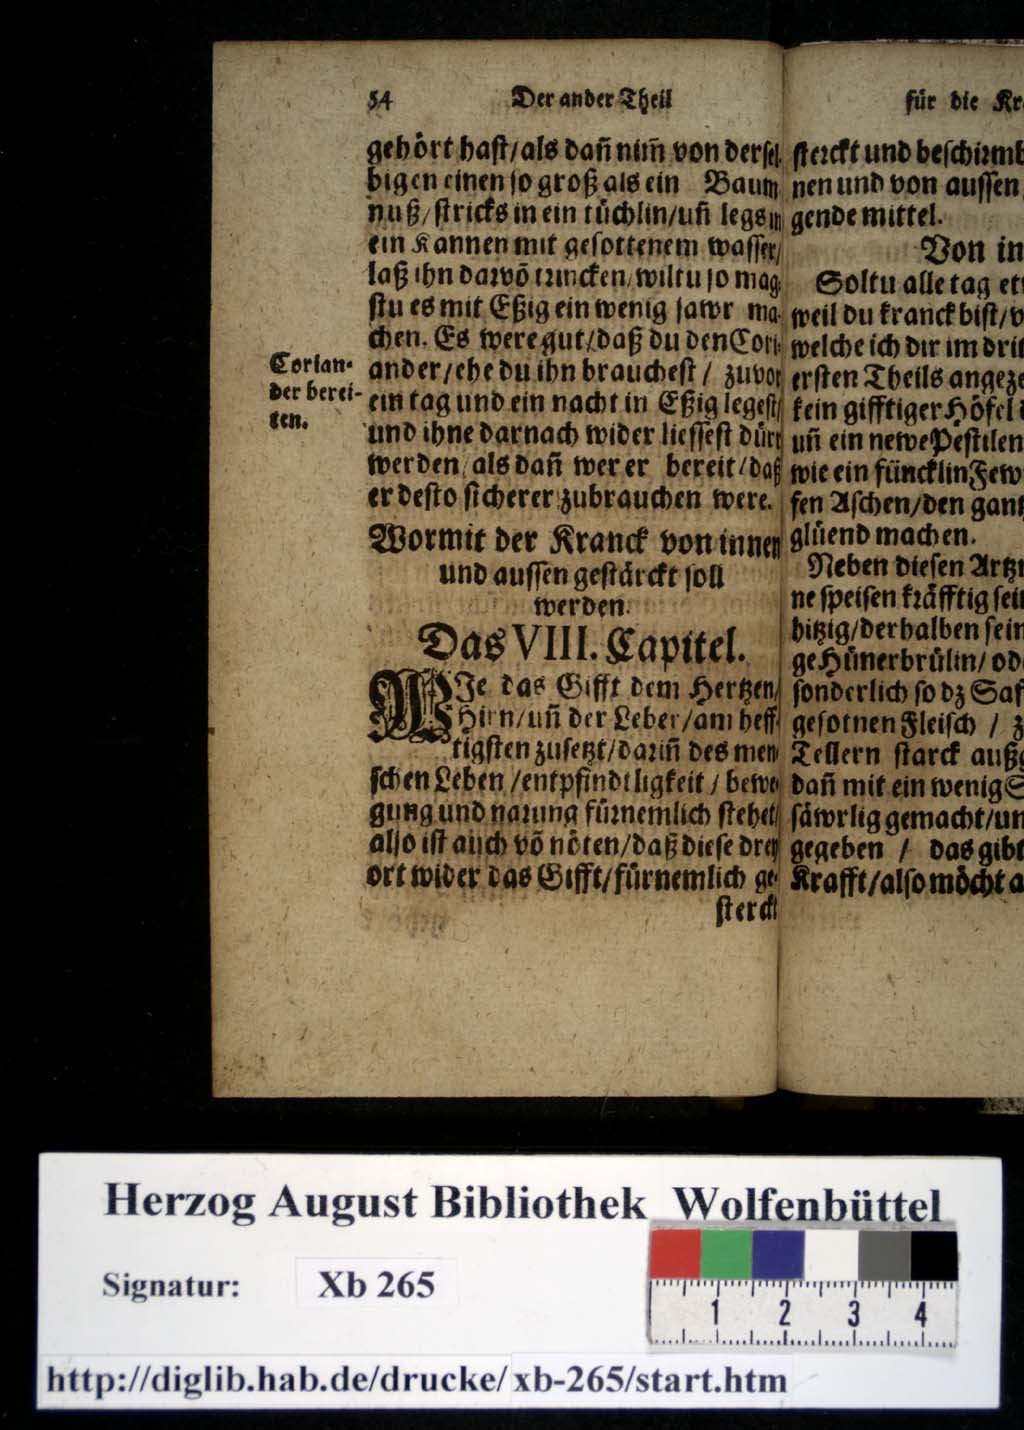 54 Der ander Theil
gehört hast/als dañ nim̄ von dersel-
bigen einen so groß als ein Baum
nuß/stricks in ein tüchlin/uñ legs in
ein Kannen mit gesottenem wasser/
laß ihn darvō trincken/wiltu so mag-
stu es mit Eßig ein wenig sawr ma-
chen. Es were gut/daß du den Cori-
ander/ehe du ihn brauchest/ zuvor
ein tag und ein nacht in Eßig legest/
und ihne darnach wider liessest dürr
werden/als dañ wer er bereit/daß
er desto sicherer zubrauchen were.
Corian-
der berei-
ten.
Wormit der Kranck von innen
und aussen gestärckt soll
werden.
Das VIII. Capitel.
WJe das Gifft dem Hertzen/
Hirn/uñ der Leber/am heff-
tigsten zusetzt/dariñ des men-
schen Leben/entpfindtligkeit/ bewe-
gung und narung fürnemlich stehet/
also ist auch vō nöten/daß diese drey
ort wider das Gifft/fürnemlich ge-
sterckt
für die Kr
sterckt und beschirmb
nen und von aussen
gende mittel.
Von in
Soltu alle tag et
weil du kranck bist/v
welche ich dir im drit
ersten Theils angeze
kein gifftiger Höfel i
uñ ein newe Pestilen
wie ein füncklin Few
sen Aschen/den gant
glüend machen.
Neben diesen Artzt
ne speisen kräfftig sei
hitzig/derhalben sein
ge Hünerbrülin/ od
sonderlich so dz Saf
gesotnen Fleisch / z
Tellern starck außg
dañ mit ein wenig S
säwrlig gemacht/un
gegeben / das gibt
Krafft/also möcht a
Herzog August Bibliothek Wolfenbüttel
Signatur: Xb 265
1 2 3 4
http://diglib.hab.de/drucke/xb-265/start.htm